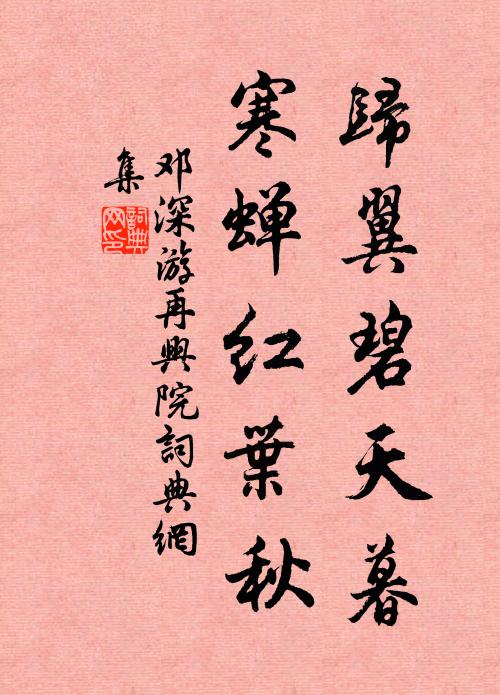 歸翼碧天暮
寒蝉红葉秋
邓深游再興院詞典網
集
詞典
网印